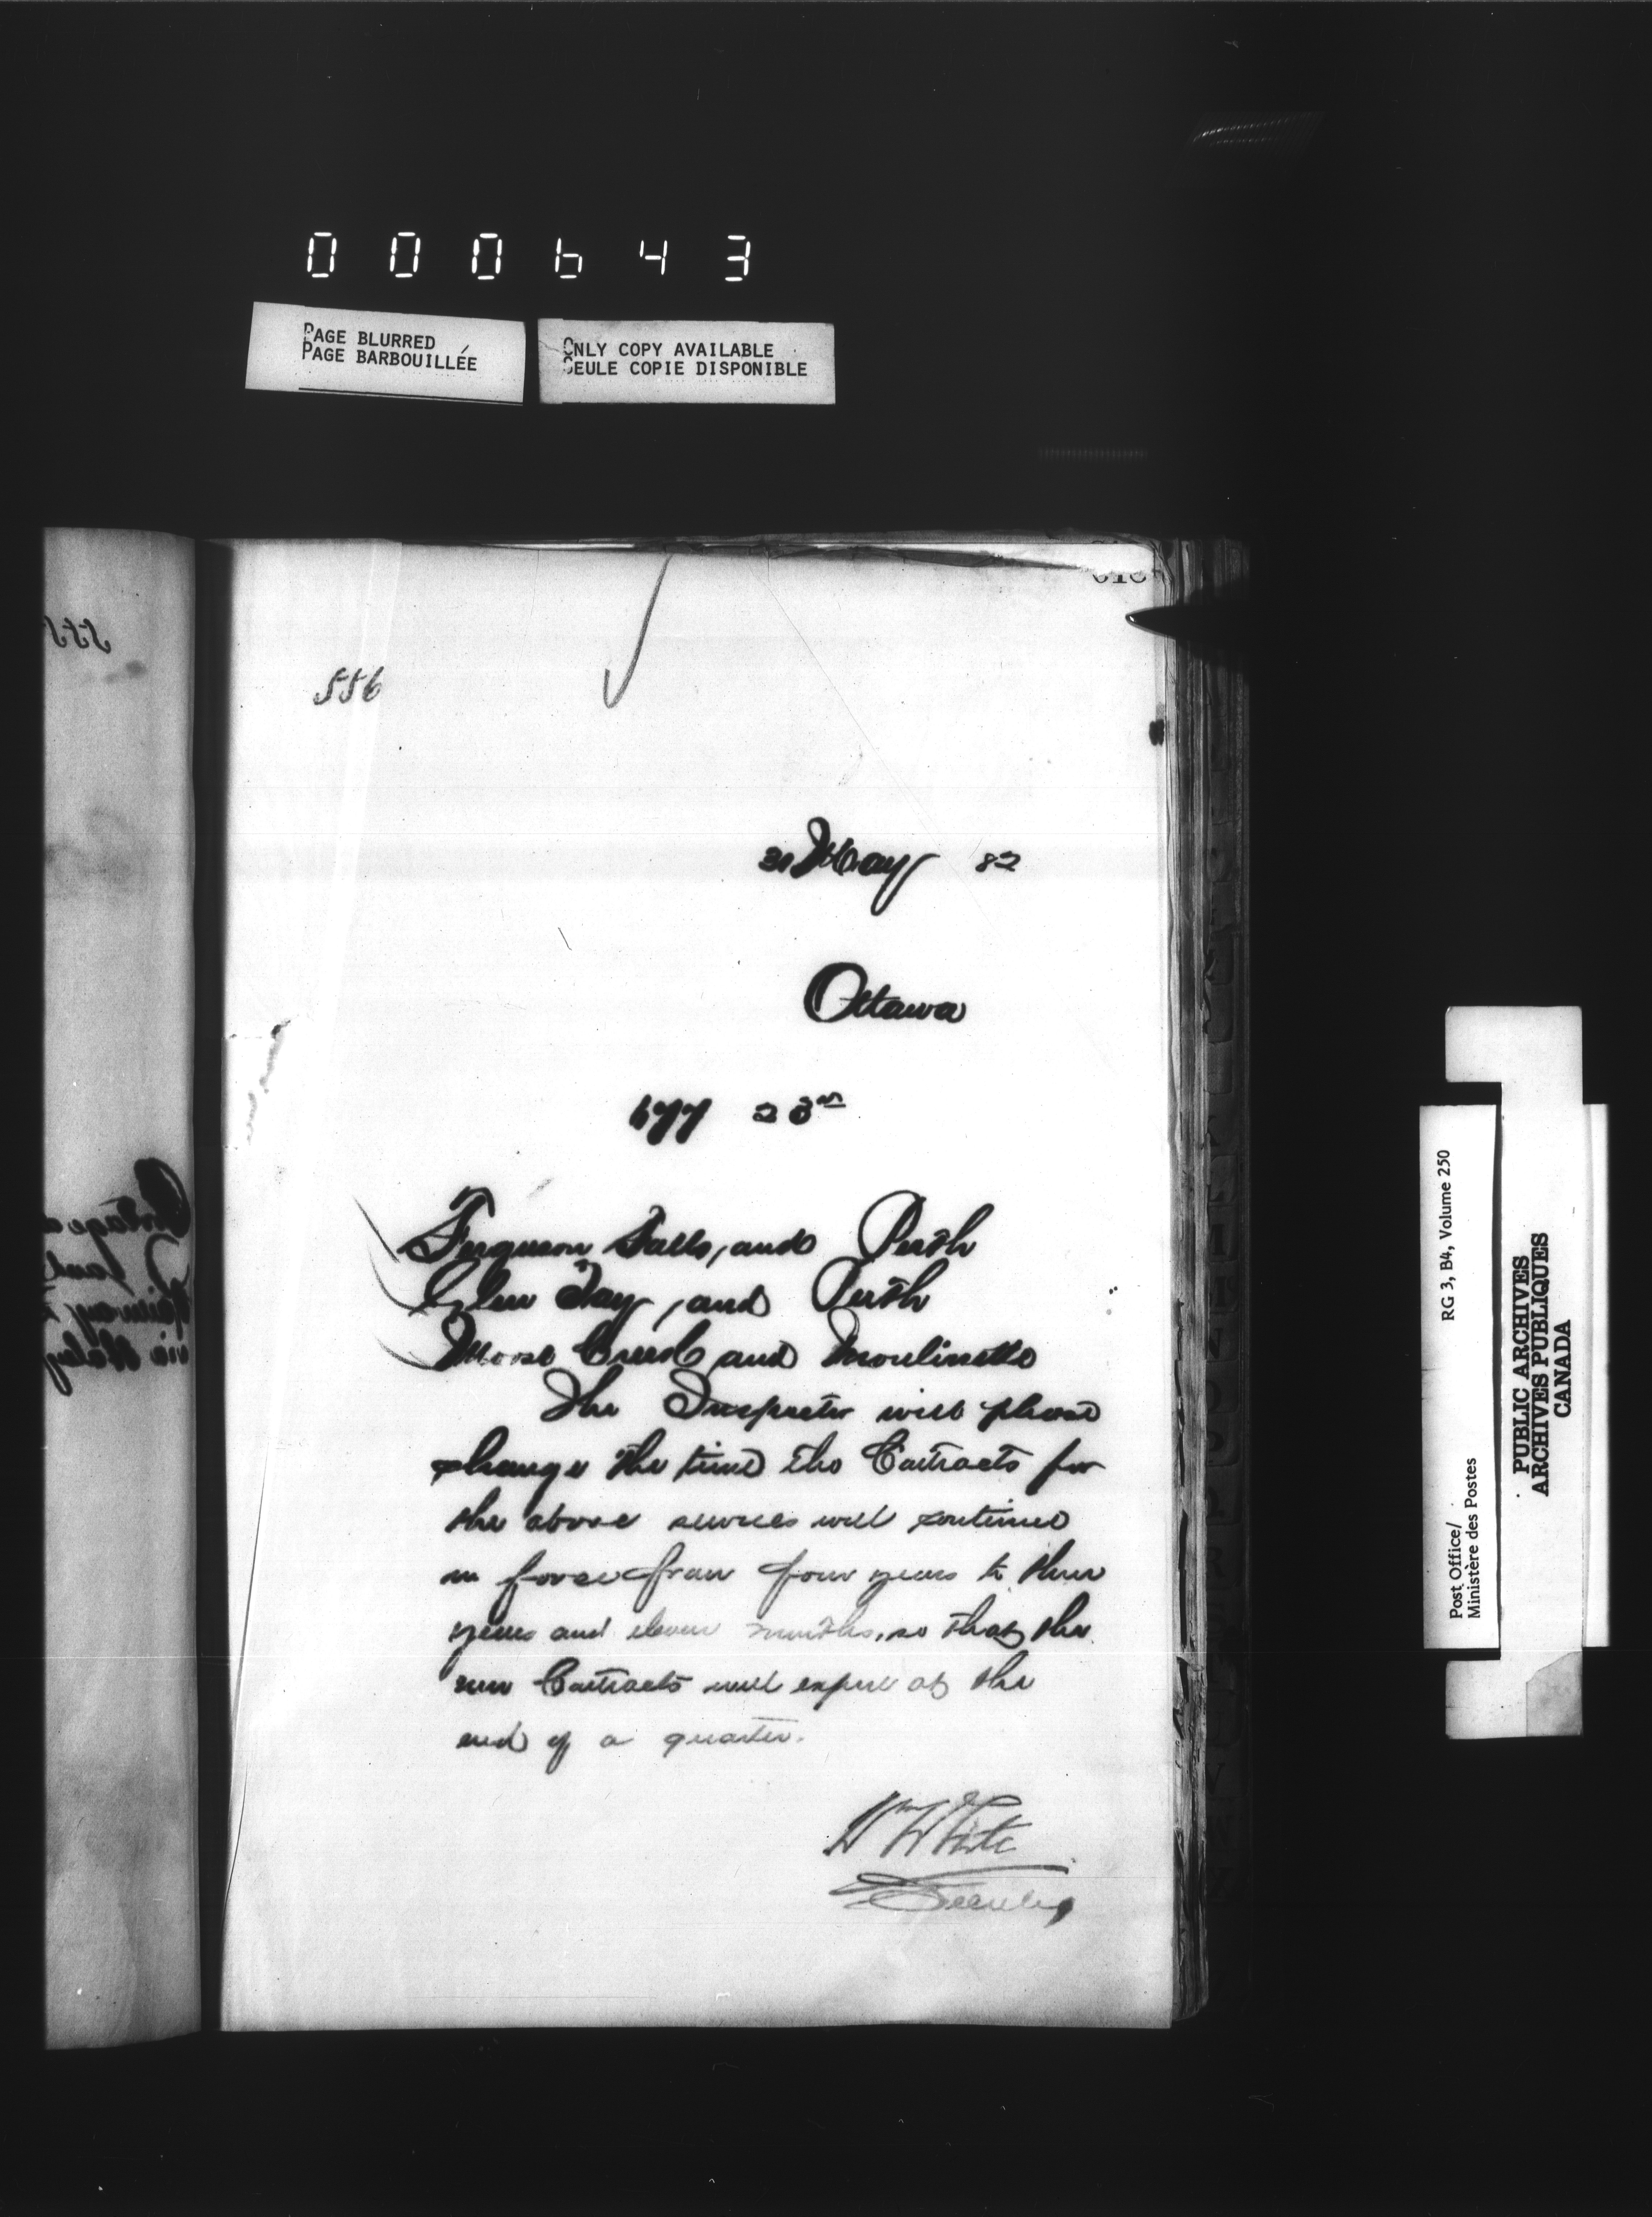 000643
PAGE BLURRED
PAGE BARBOUILLÉE
ONLY COPY AVAILABLE
SEULE COPIE DISPONIBLE
555
556
31 May 82
Ottawa
677 23rd
Ferguson Falls, and Perth
Glen Tay, and Perth
Moose Creek and Moulinette
The Inspector will please
change the time the Contracts for
the above services will continue
in force from four years to three
years and eleven months, so that the
new Contracts will expire at the
end of a quarter.
Wm White
Secretary
RG 3, B4, Volume 250
Post Office/
Ministère des Postes
PUBLIC ARCHIVES
ARCHIVES PUBLIQUES
CANADA